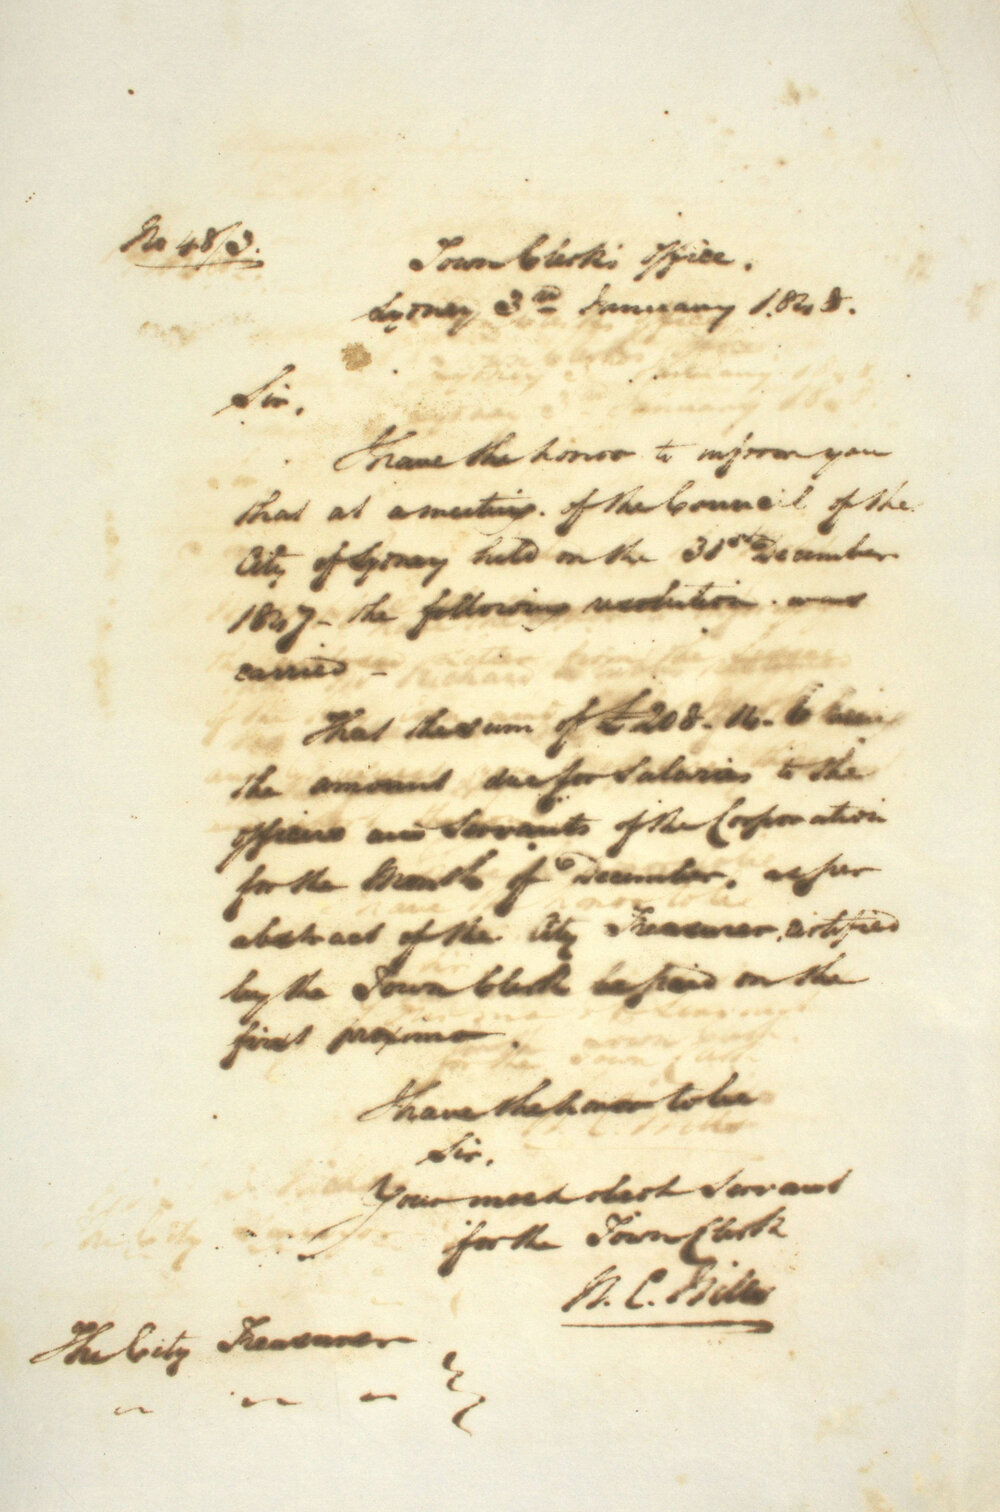 No 48/3.
Town Clerk's Office.
Sydney 3rd January 1848.
Sir,
I have the honor to inform you
that at a meeting of the Council of the
City of Sydney held on the 31st December
1847 - the following resolution was
carried -
That the sum of £208. 16. 6 being
the amount due for Salaries to the
Officers and Servants of the Corporation
for the Month of December, as per
abstract of the City Treasurer, certified
by the Town Clerk be paid on the
first proximo.
I have the honor to be
Sir,
Your most obedt Servant
for the Town Clerk
The City Treasurer